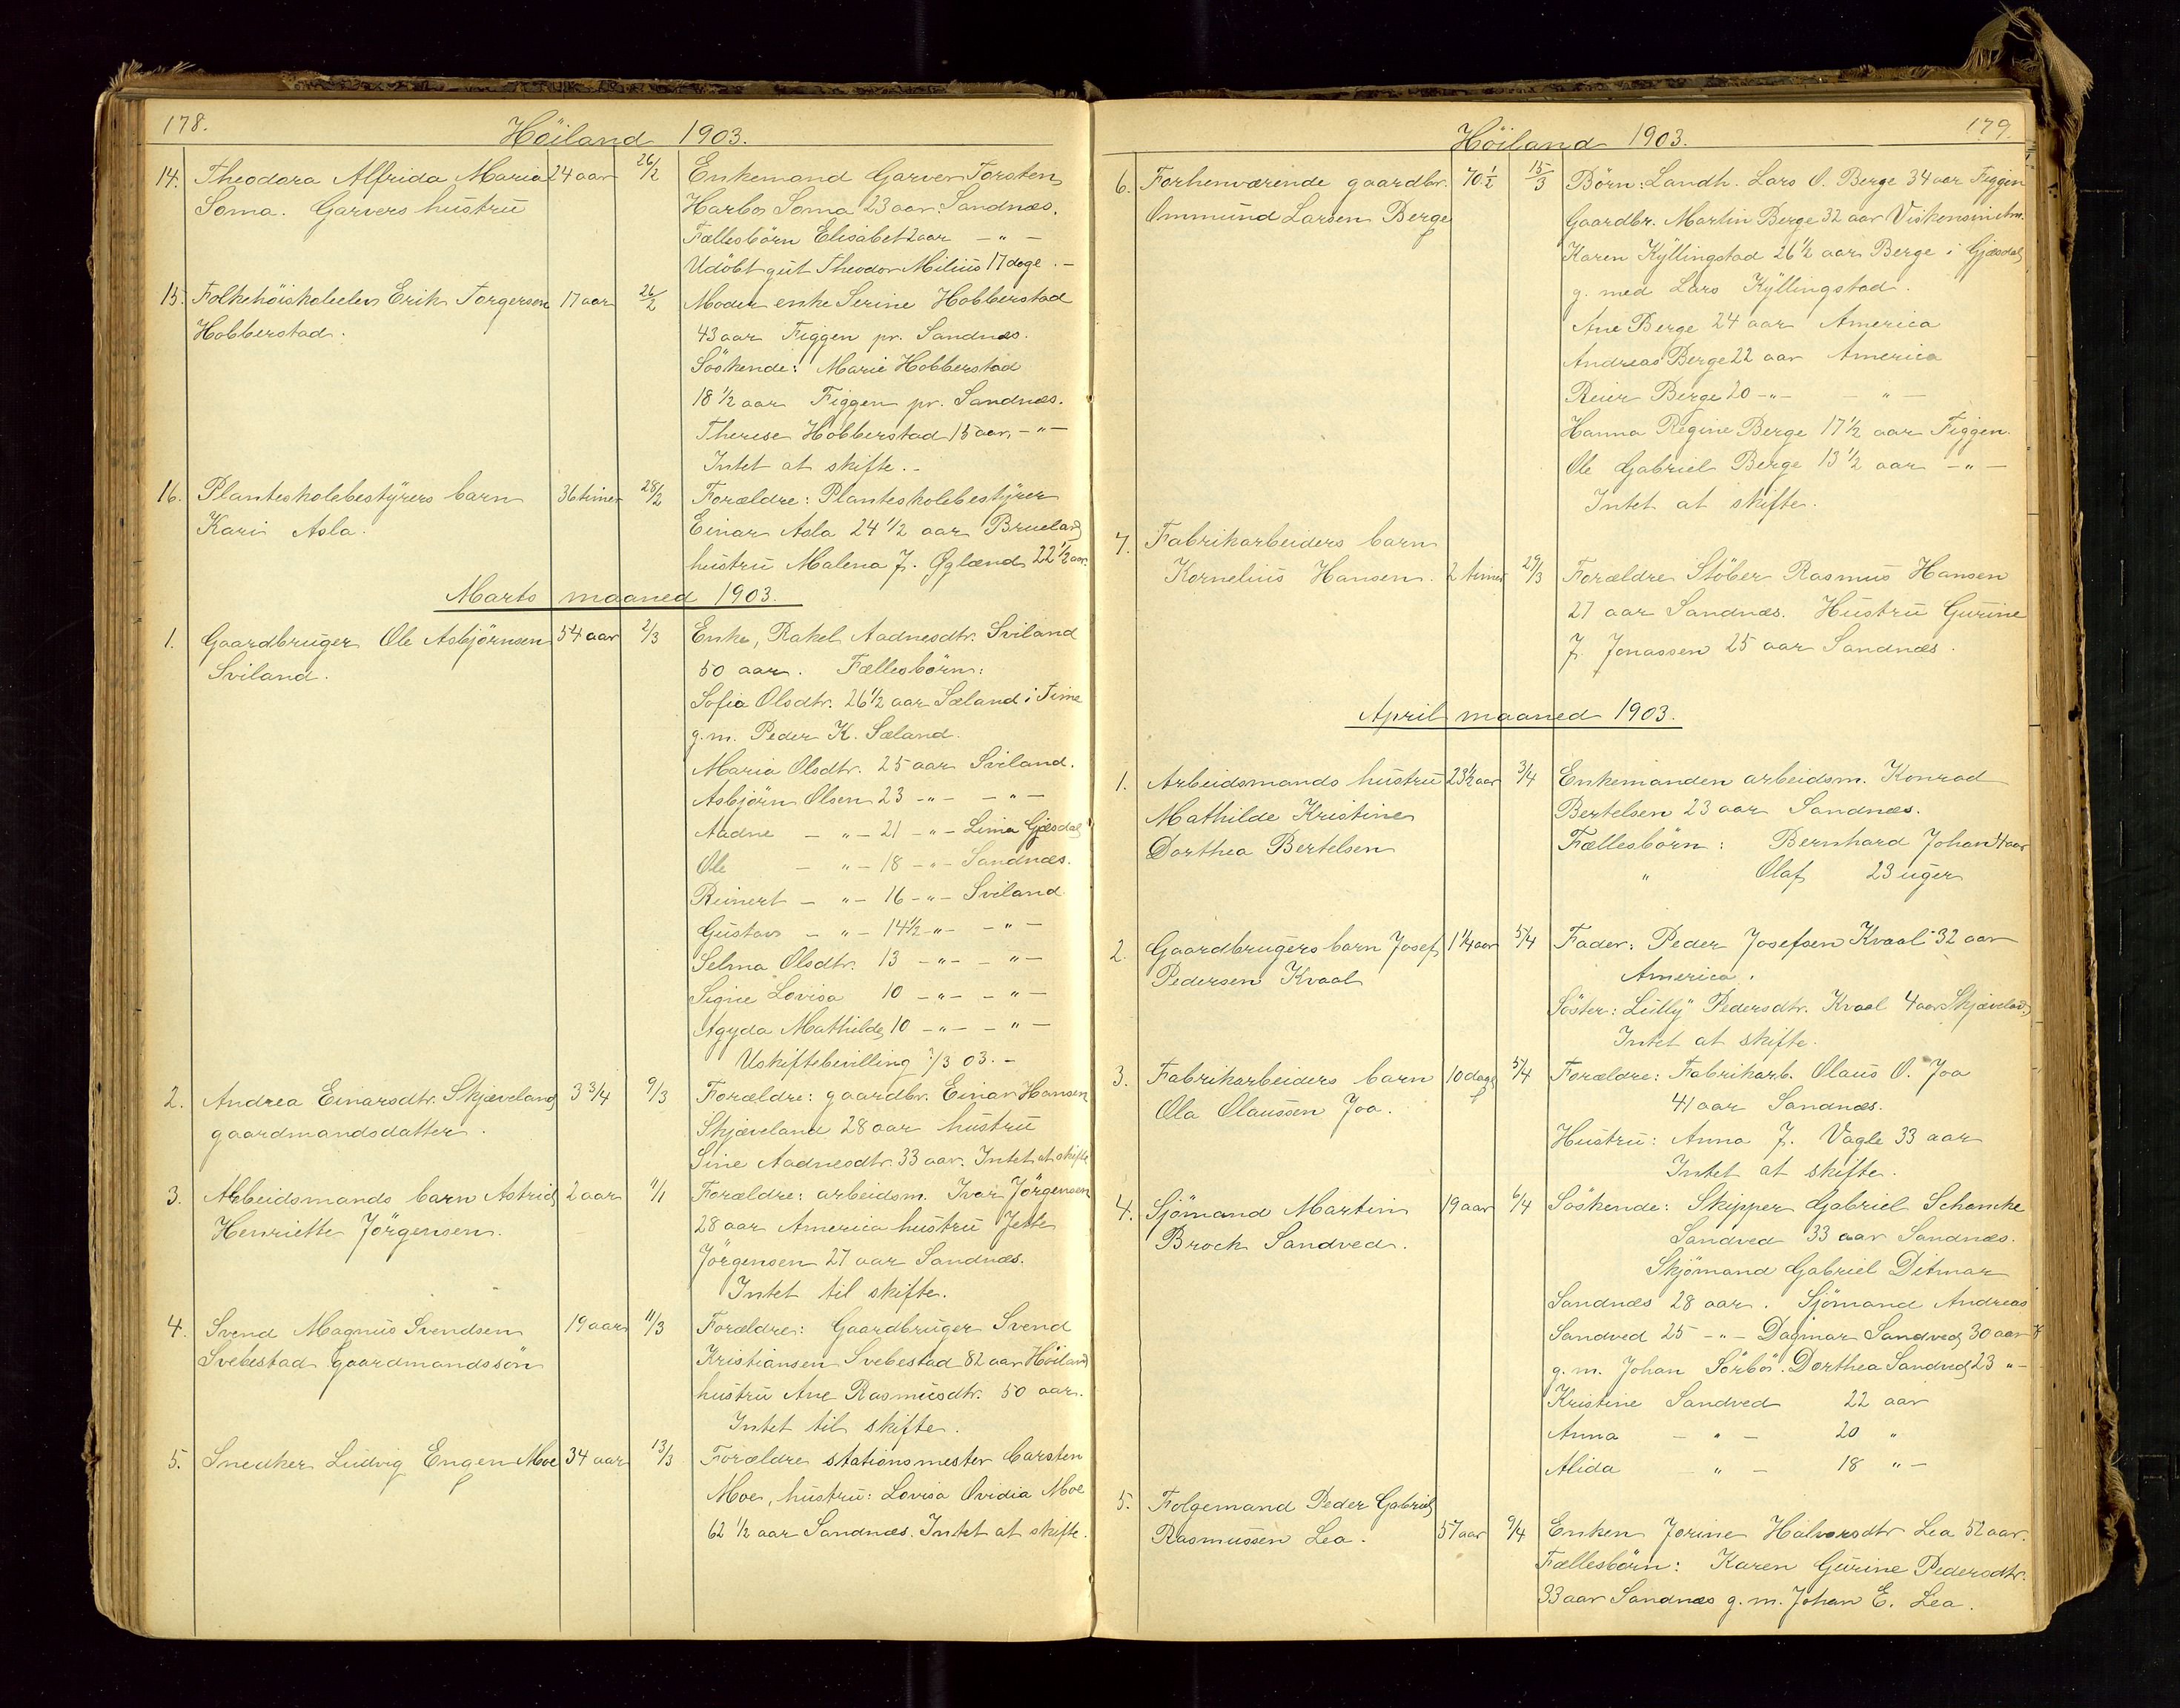 178.
Höiland 1903.
14. Theodora Alfrida Maria 24 aar 26/2 Enkemand Garver Torsten
Soma. Garvers hustru Harbo Soma 23 aar. Sandnæs.
Fællesbörn Elisabet 2 aar — " —
Udöbt gut Theodor Milius 17 dage. —
15. Folkehöiskoleelev Erik Torgersen 17 aar 26/2 Moder enke Serine Hobberstad
Hobberstad. 43 aar Figgen pr. Sandnæs.
Söskende: Marie Hobberstad
18 1/2 aar Figgen pr. Sandnæs.
Therese Hobberstad 15 aar, — " —
Intet at skifte. -
16. Planteskolebestyrers barn 36 timer 28/2 Forældre: Planteskolebestyrer
Kari Asla. Einar Asla 24 1/2 aar Brueland
hustru Malena J. Øglænd 22 1/2 aar.
Marts maaned 1903.
1. Gaardbruger Ole Asbjörnsen 54 aar 2/3 Enke, Rakel Aadnesdtr. Sviland
Sviland. 50 aar. Fællesbörn:
Sofia Olsdtr. 26 1/2 aar Sæland i Time
g. m. Peder K. Sæland.
Maria Olsdtr. 25 aar Sviland.
Asbjörn Olsen 23 - " - — " —
Aadne — " — 21 - " - Lima Gjæsdal
Ole — " — 18 - " - Sandnæs.
Reinert — " — 16 - " - Sviland
Gustav — " — 14 1/2 - " - — " —
Selma Olsdtr. 13 - " - — " —
Signe Lovisa 10 - " - — " —
Agyda Mathilde 10 - " - — " —
Uskiftebevilling /3 03. -
2. Andrea Einarsdtr. Skjæveland 3 3/4 9/3 Forældre: gaardbr. Einar Hansen
gaardmandsdatter. Skjæveland 28 aar hustru
Sine Aadnesdtr. 33 aar. Intet at skifte
3. Arbeidsmands barn Astrid 2 aar 11/1 Forældre: arbeidsm. Ivar Jörgensen
Henriette Jörgensen. 28 aar America hustru Jette
Jörgensen 27 aar Sandnæs.
Intet til skifte.
4. Svend Magnus Svendsen 19 aar 11/3 Forældre: Gaardbruger Svend
Svebestad gaardmandssön Kristiansen Svebestad 82 aar Höiland
hustru Ane Rasmusdtr. 50 aar.
Intet til skifte.
5. Snedker Ludvig Engen Moe 34 aar 13/3 Forældre stationsmester Carsten
Moe, hustru: Lovisa Ovidia Moe
62 1/2 aar Sandnæs. Intet at skifte.
179.
Höiland 1903.
6. Forhenværende gaardbr. 70 1/2 15/3 Börn: Landh. Lars O. Berge 34 aar Figgen
Ommund Larsen Berge Gaardbr. Martin Berge 32 aar Viskonsin Am.
Karen Kyllingstad 26 1/2 aar Berge i Gjæsdal
g. med Lars Kyllingstad.
Ane Berge 24 aar America
Andreas Berge 22 aar America
Reier Berge 20 - " - — " —
Hanna Regine Berge 17 1/2 aar Figgen.
Ole Gabriel Berge 13 1/2 aar — " —
Intet at skifte.
7. Fabrikarbeiders barn
Kornelius Hansen. 2 timer 29/3 Forældre Stöber Rasmus Hansen
27 aar Sandnæs. Hustru Gurine
J. Jonassen 25 aar Sandnæs.
April maaned 1903.
1. Arbeidsmands hustru 23 1/2 aar 3/4 Enkemanden arbeidsm. Konrad
Mathilde Kristine Bertelsen 23 aar Sandnæs.
Dorthea Bertelsen Fællesbörn: Bernhard Johan 4 aar
" Olaf 23 uger
2. Gaardbrugers barn Josef 1 1/4 aar 5/4 Fader: Peder Josefsen Kvaal 32 aar
Pedersen Kvaal America.
Söster: Lully Pedersdtr. Kvaal 4 aar Skjæveland
Intet at skifte.
3. Fabrikarbeiders barn 10 dage 5/4 Forældre: Fabrikarb. Olaus O. Joa
Ola Olaussen Joa. 41 aar Sandnæs.
Hustru: Anna J. Vagle 33 aar
Intet at skifte.
4. Sjömand Martin 19 aar 6/4 Söskende: Skipper Gabriel Schanke
Brock Sandved. Sandved 33 aar Sandnæs.
Skjömand Gabriel Ditmar
Sandnæs 28 aar. Sjömand Andreas
Sandved 25 - " - Dagmar Sandved 30 aar
g. m. Johan Sörbö. Dorthea Sandved 23 " -
Kristine Sandved 22 aar
Anna — " — 20 "
Alida — " — 18 " -
5. Folgemand Peder Gabriel
Rasmussen Lea. 57 aar 9/4 Enken Jorine Halvorsdtr Lea 52 aar.
Fællesbörn: Karen Gurine Pedersdtr.
33 aar Sandnæs g. m. Johan E. Lea.